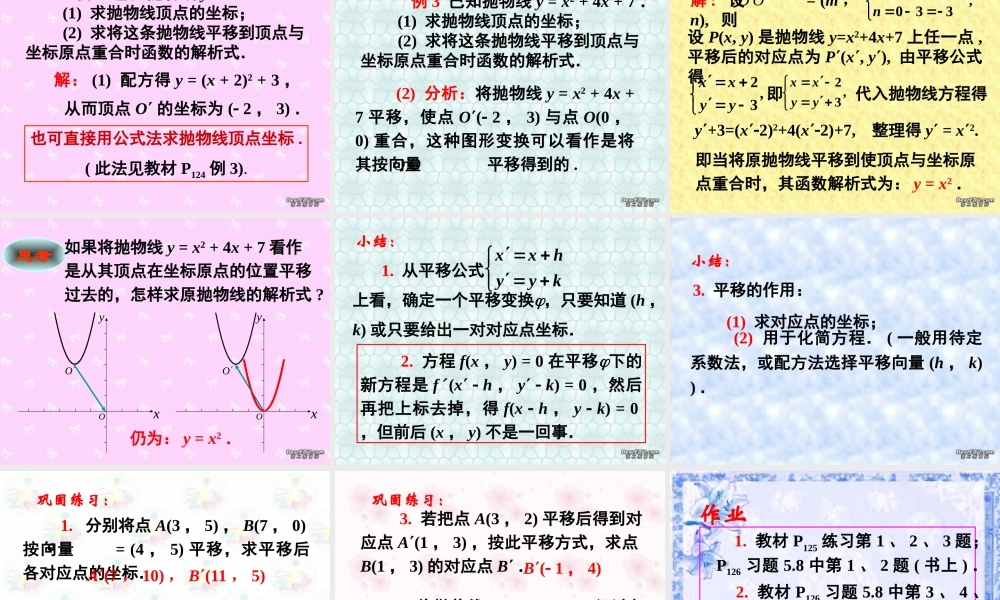 (1) 求抛物线顶点的坐标；
(2) 求将这条抛物线平移到顶点与
坐标原点重合时函数的解析式．
解： (1) 配方得 y = (x + 2)² + 3 ，
从而顶点 O′ 的坐标为 (− 2 ， 3) ．
也可直接用公式法求抛物线顶点坐标 .
( 此法见教材 P124 例 3).
例 3 已知抛物线 y = x² + 4x + 7 ．
(1) 求抛物线顶点的坐标；
(2) 求将这条抛物线平移到顶点与
坐标原点重合时函数的解析式．
(2) 分析：将抛物线 y = x² + 4x +
7 平移，使点 O′(− 2 ， 3) 与点 O(0 ，
0) 重合，这种图形变换可以看作是将
其按向量 平移得到的 .
解：设 O′ = (m ，
n)， 则
n=0−3 −3
设 P(x, y) 是抛物线 y=x²+4x+7 上任一点 ,
平移后的对应点为 P′(x′, y′), 由平移公式
得
x′= x+2
y′= y−3
, 即
x= x′−2
y= y′+3
, 代入抛物线方程得
y′+3=(x′−2)²+4(x′−2)+7, 整理得 y′ = x′².
即当将原抛物线平移到使顶点与坐标原
点重合时，其函数解析式为： y = x² ．
思考
如果将抛物线 y = x² + 4x + 7 看作
是从其顶点在坐标原点的位置平移
过去的，怎样求原抛物线的解析式 ?
y
O′
O
x
y
O′
O
x
仍为： y = x² ．
小结：
1. 从平移公式
x′= x+h
y′= y+k
上看，确定一个平移变换φ，只要知道 (h ，
k) 或只要给出一对对应点坐标．
2. 方程 f(x ， y) = 0 在平移φ下的
新方程是 f ′(x′− h ， y′− k) = 0 ，然后
再把上标去掉，得 f(x − h ， y − k) = 0
，但前后 (x ， y) 不是一回事．
小结：
3. 平移的作用：
(1) 求对应点的坐标；
(2) 用于化简方程． ( 一般用待定
系数法，或配方法选择平移向量 (h ， k)
) ．
巩固练习：
1. 分别将点 A(3 ， 5) ， B(7 ， 0)
按向量 = (4 ， 5) 平移，求平移后
各对应点的坐标．
10) ， B′(11 ， 5)
巩固练习：
3. 若把点 A(3 ， 2) 平移后得到对
应点 A′(1 ， 3) ，按此平移方式，求点
B(1 ， 3) 的对应点 B′ .
B′(− 1 ， 4)
作业
1. 教材 P125 练习第 1 、 2 、 3 题；
P126 习题 5.8 中第 1 、 2 题 ( 书上 ) ．
2. 教材 P126 习题 5.8 中第 3 、 4 、